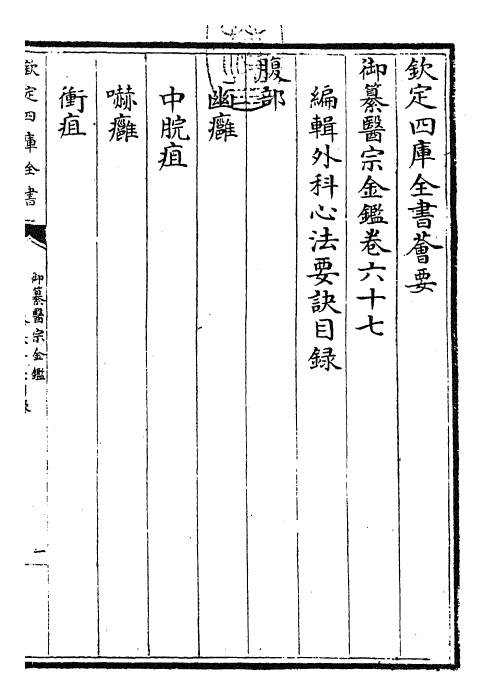 欽定四庫全書薈要
御纂醫宗金鑑卷六十七
編輯外科心法要訣目録
腹部
幽癰
中脘疽
嚇癰
衝疽
欽定四庫全書
御纂醫宗金鑑
一